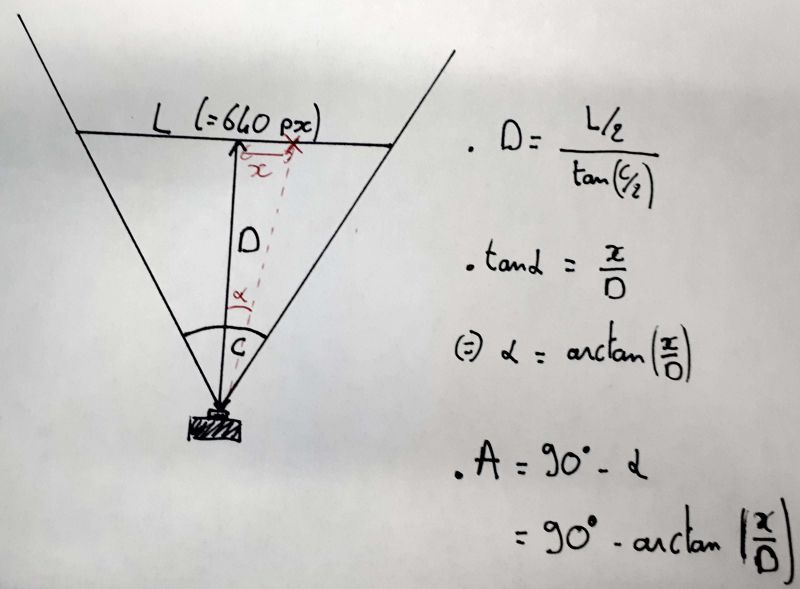 L (=640 px)
x
D
α
C
. D = L/2 / tan(C/2)
. tanα = x/D
(=) α = arctan(x/D)
. A = 90° - α
= 90° - arctan(x/D)